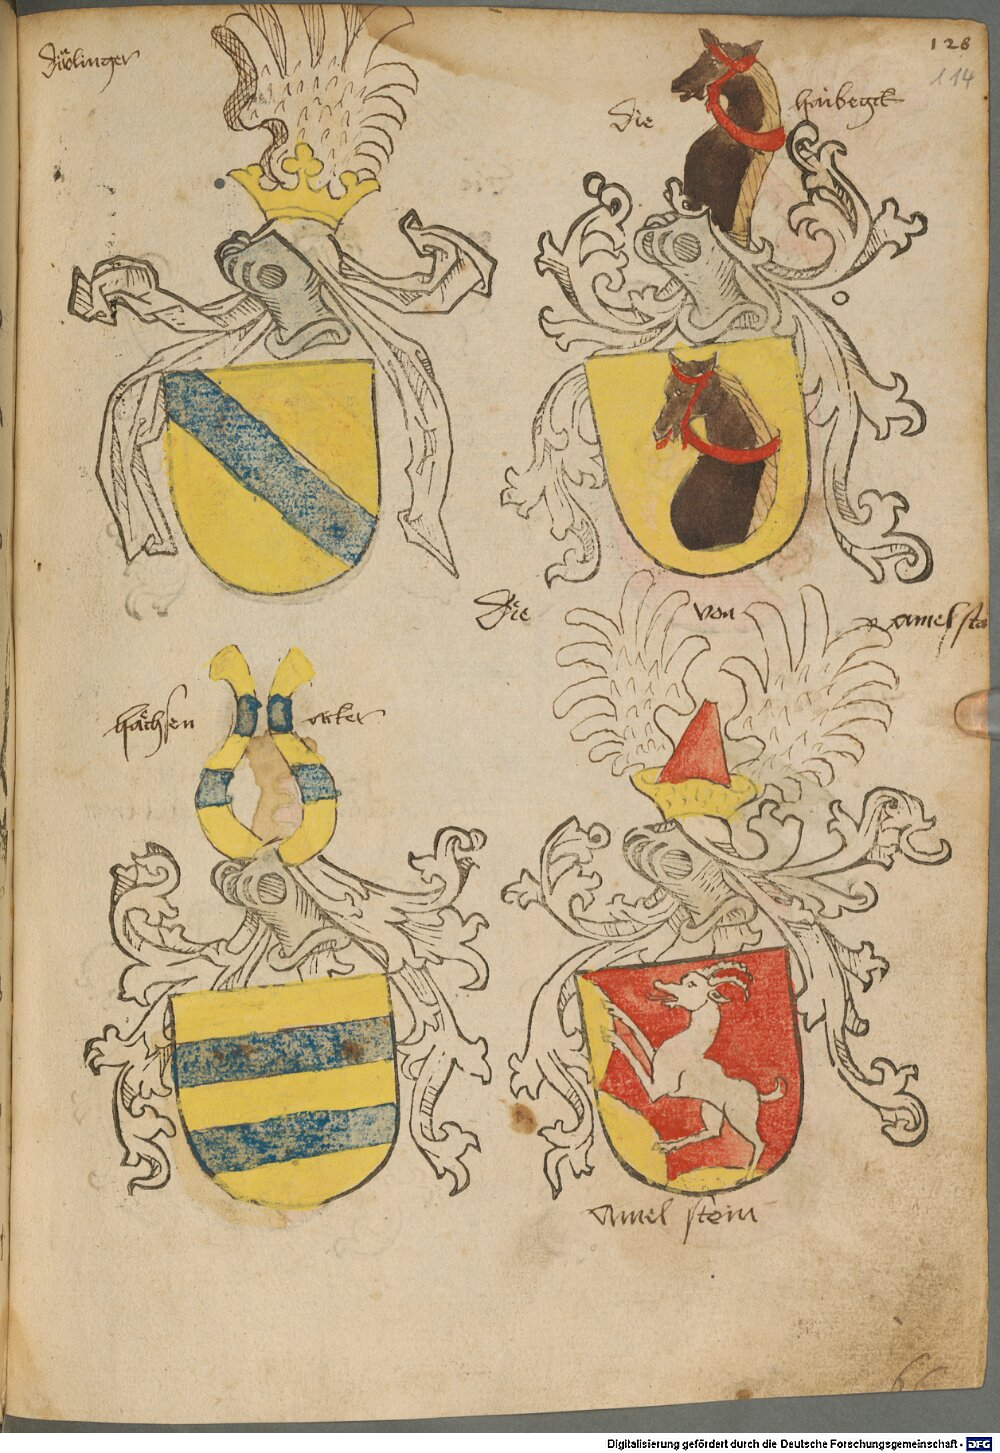 128
114
die
haibegck
die von amelsta
hächsen acker
amel stein
66
Digitalisierung gefördert durch die Deutsche Forschungsgemeinschaft - DFG